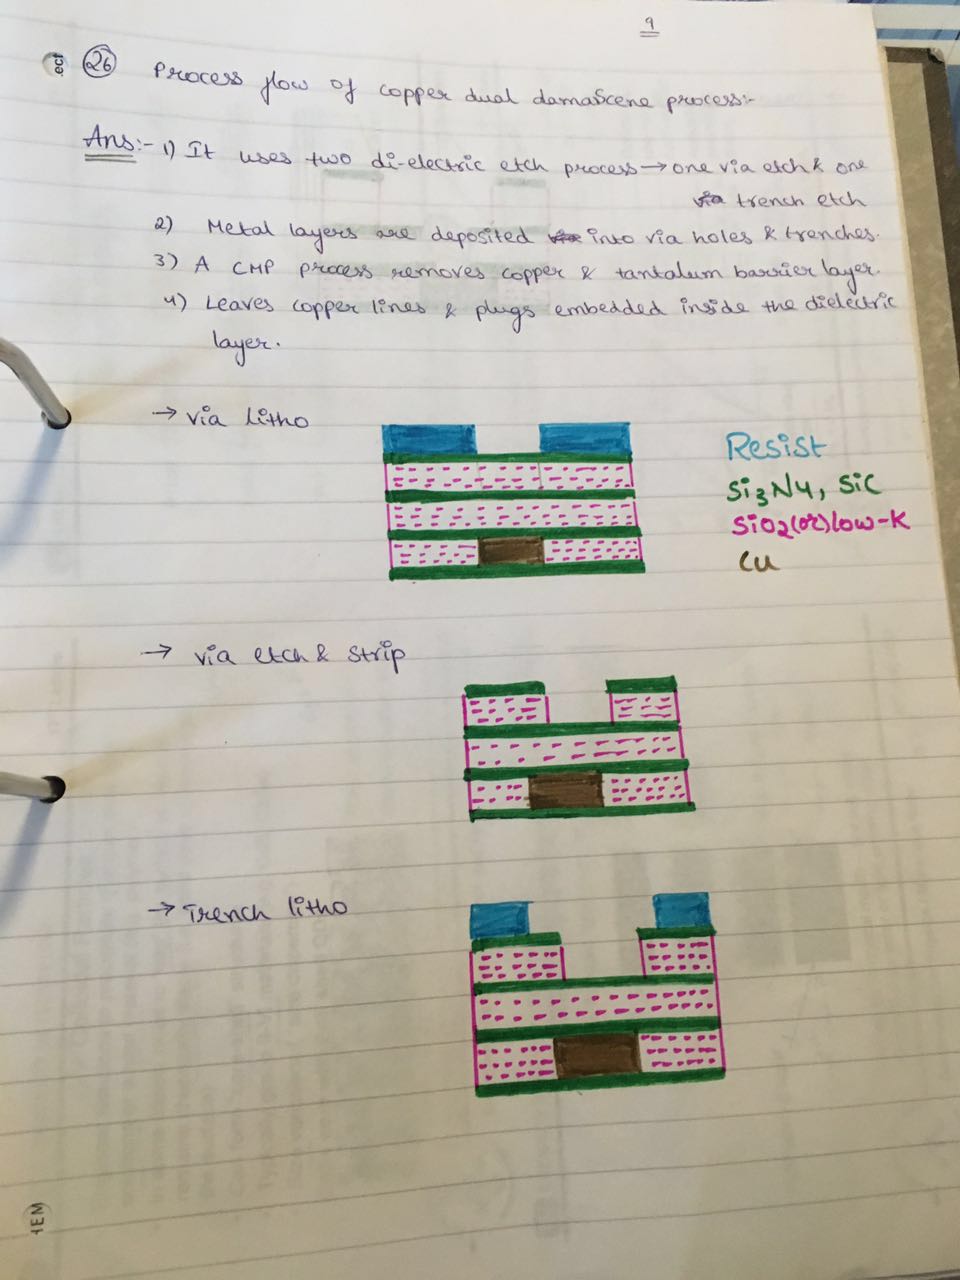 9
26 Process flow of copper dual damascene process:-
Ans:- 1) It uses two di-electric etch process → one via etch & one
via trench etch
2) Metal layers are deposited into via holes & trenches.
3) A CMP process removes copper & tantalum barrier layer.
4) Leaves copper lines & plugs embedded inside the dielectric
layer.
→ via litho
Resist
Si3N4, SiC
SiO2(or)low-K
Cu
→ via etch & strip
→ Trench litho